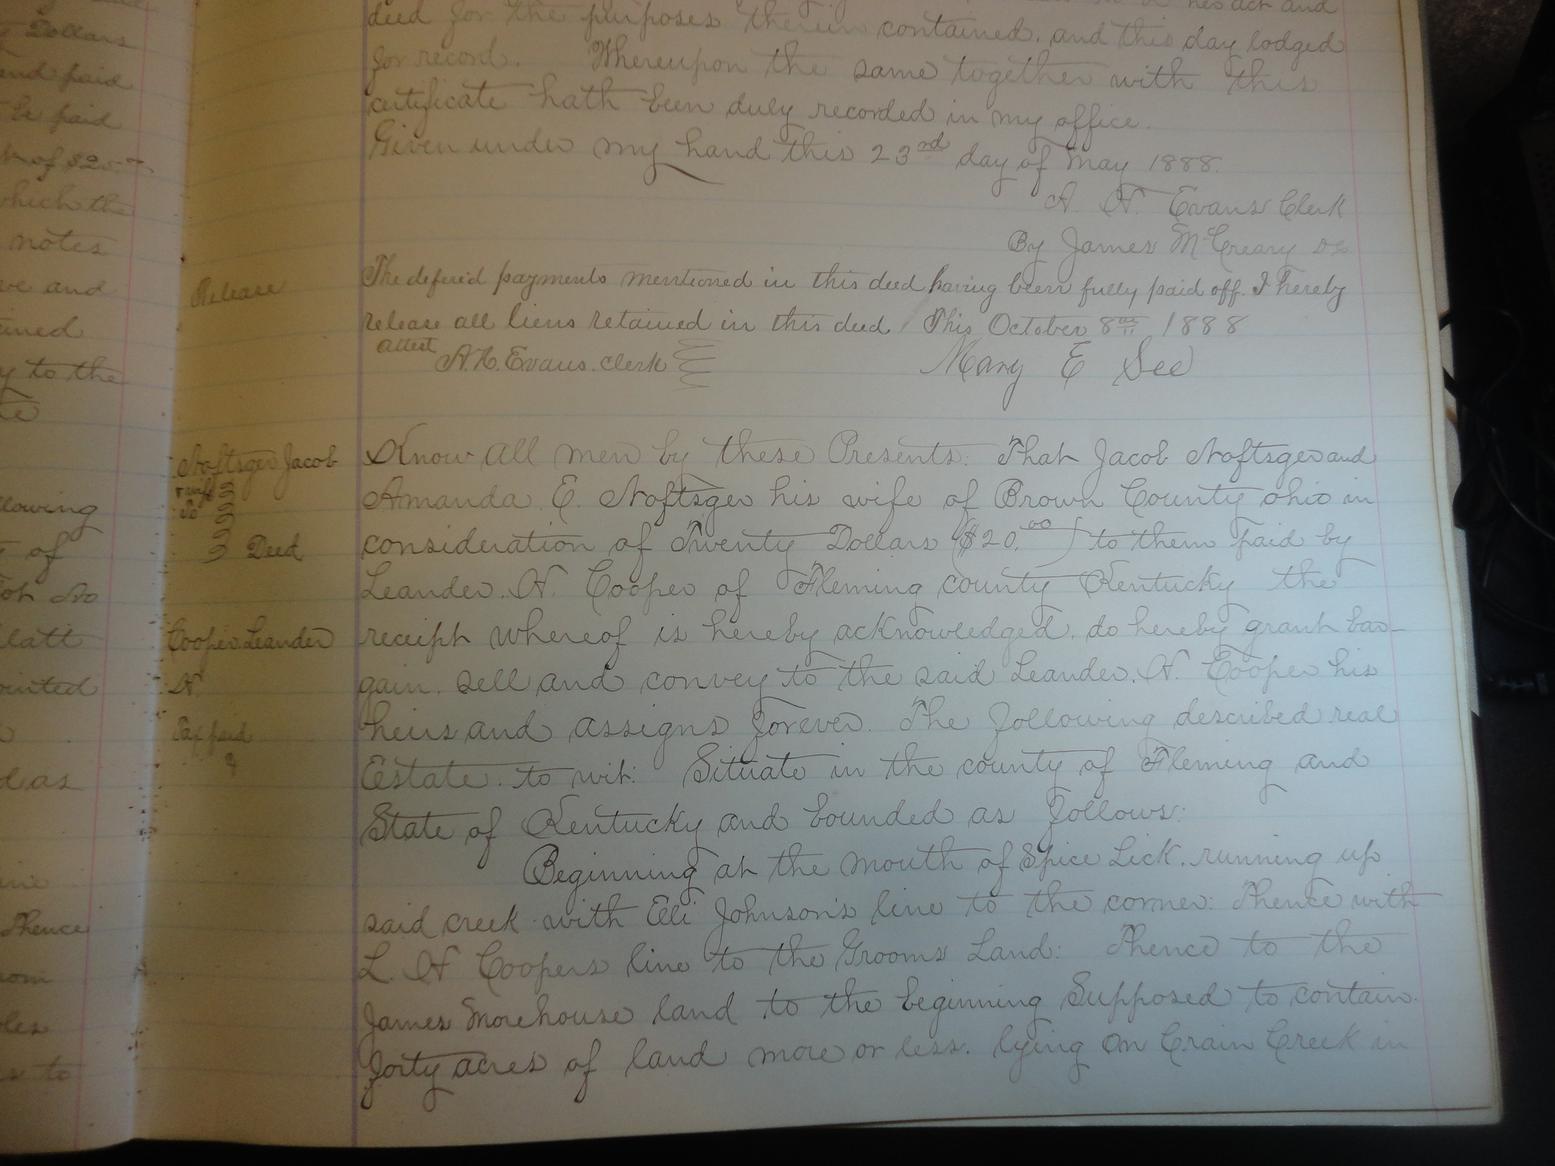 Dollars
and paid
be paid
of $25.00
which the
notes
and
to the
llowing
of
latt
ointed
as
Thence
to
act and
deed for the purposes therein contained, and this day lodged
for record. Whereupon the same together with this
certificate hath been duly recorded in my office.
Given under my hand this 23rd day of May 1888.
A. H. Evans Clerk
By James McCreary DC
Release
The defered payments mentioned in this deed having been fully paid off. I hereby
release all liens retained in this deed. This October 8th 1888
attest A. H. Evans. clerk Mary E See
Naftsger Jacob
& wife
To
Deed
Cooper Leander
N.
Tax paid
Know all men by these Presents: That Jacob Naftsger and
Amanda E. Naftsger his wife of Brown County ohio in
consideration of Twenty Dollars ($20.00) to them paid by
Leander. N. Cooper of Fleming county Kentucky the
receipt whereof is hereby acknowledged. do hereby grant bar-
gain. sell and convey to the said Leander. N. Cooper his
heirs and assigns forever. The following described real
Estate. to wit: Situate in the county of Fleming and
State of Kentucky and bounded as follows:
Beginning at the mouth of Spice Lick. running up
said creek with Eli Johnson's line to the corner: Thence with
L N Coopers line to the Grooms Land: Thence to the
James Morehouse land to the beginning Supposed to contain.
forty acres of land more or less. lying on Crain Creek in